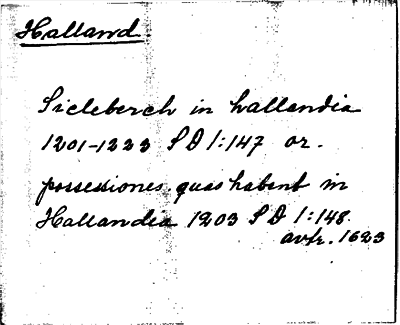 Halland.
Sicleberch in hallandia
1201-1223 SD 1:147 or.
possessiones quas habent in
Hallandia 1203 SD 1:148
avskr. 1623